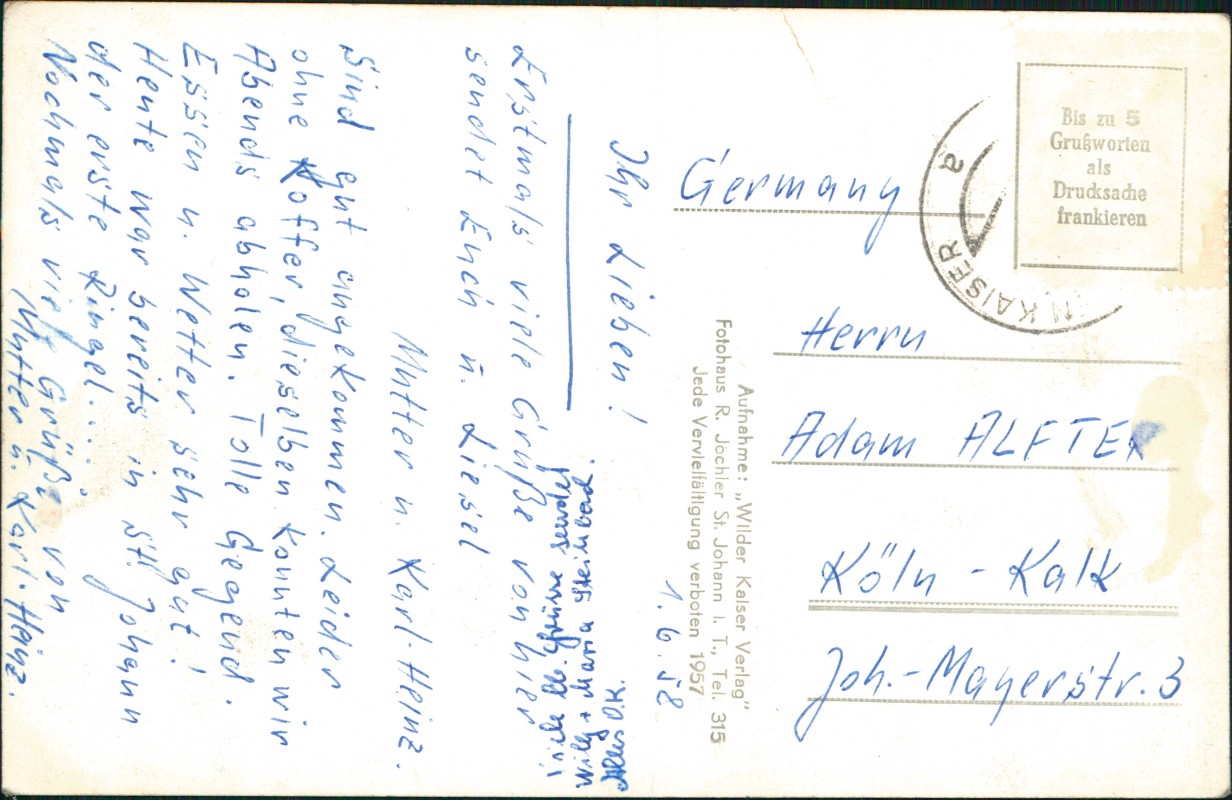 1.6.58
Ihr Lieben!
Erstmals viele Grüße von hier
sendet Euch u. Liesel
Mutter u. Karl-Heinz.
Sind gut angekommen. Leider
ohne Koffer, dieselben konnten wir
Abends abholen. Tolle Gegend.
Essen u. Wetter sehr gut!
Heute war bereits in St. Johann
der erste Ringel....
Nochmals viele Grüße von
Mutter u. Karl-Heinz.
viele lb. Grüsse sendet
Willy + Maria
Alles O.K.
Aufnahme: „Wilder Kaiser Verlag"
Fotohaus R. Jöchler St. Johann i. T., Tel. 315
Jede Vervielfältigung verboten 1957
Bis zu 5
Grußworten
als
Drucksache
frankieren
N KAISER
a
Germany
Herrn
Adam ALFTER
Köln - Kalk
Joh.-Mayerstr. 3